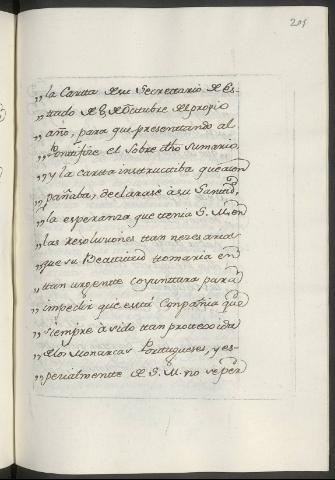 205
„ la Cartta de su Secrettario de Es-
„ tado de 8 de Octubre de propio
„ año, para que presenttando al
„ Pontifize el sobre dho sumario,
„ y la cartta instructiba que acom
„ pañaba, declarase à su Santtd,
„ la esperanza que ttenia S. M. en
„ las resoluziones ttan nezesarias
„ que su Beatitud ttomaria en
„ ttan urgentte coyunttura para
„ impedir que estta Conpañia que
„ siempre à sido ttan protexida
„ de los Monarcas Portugueses, y es-
„ pezialmentte de S. M. no se per